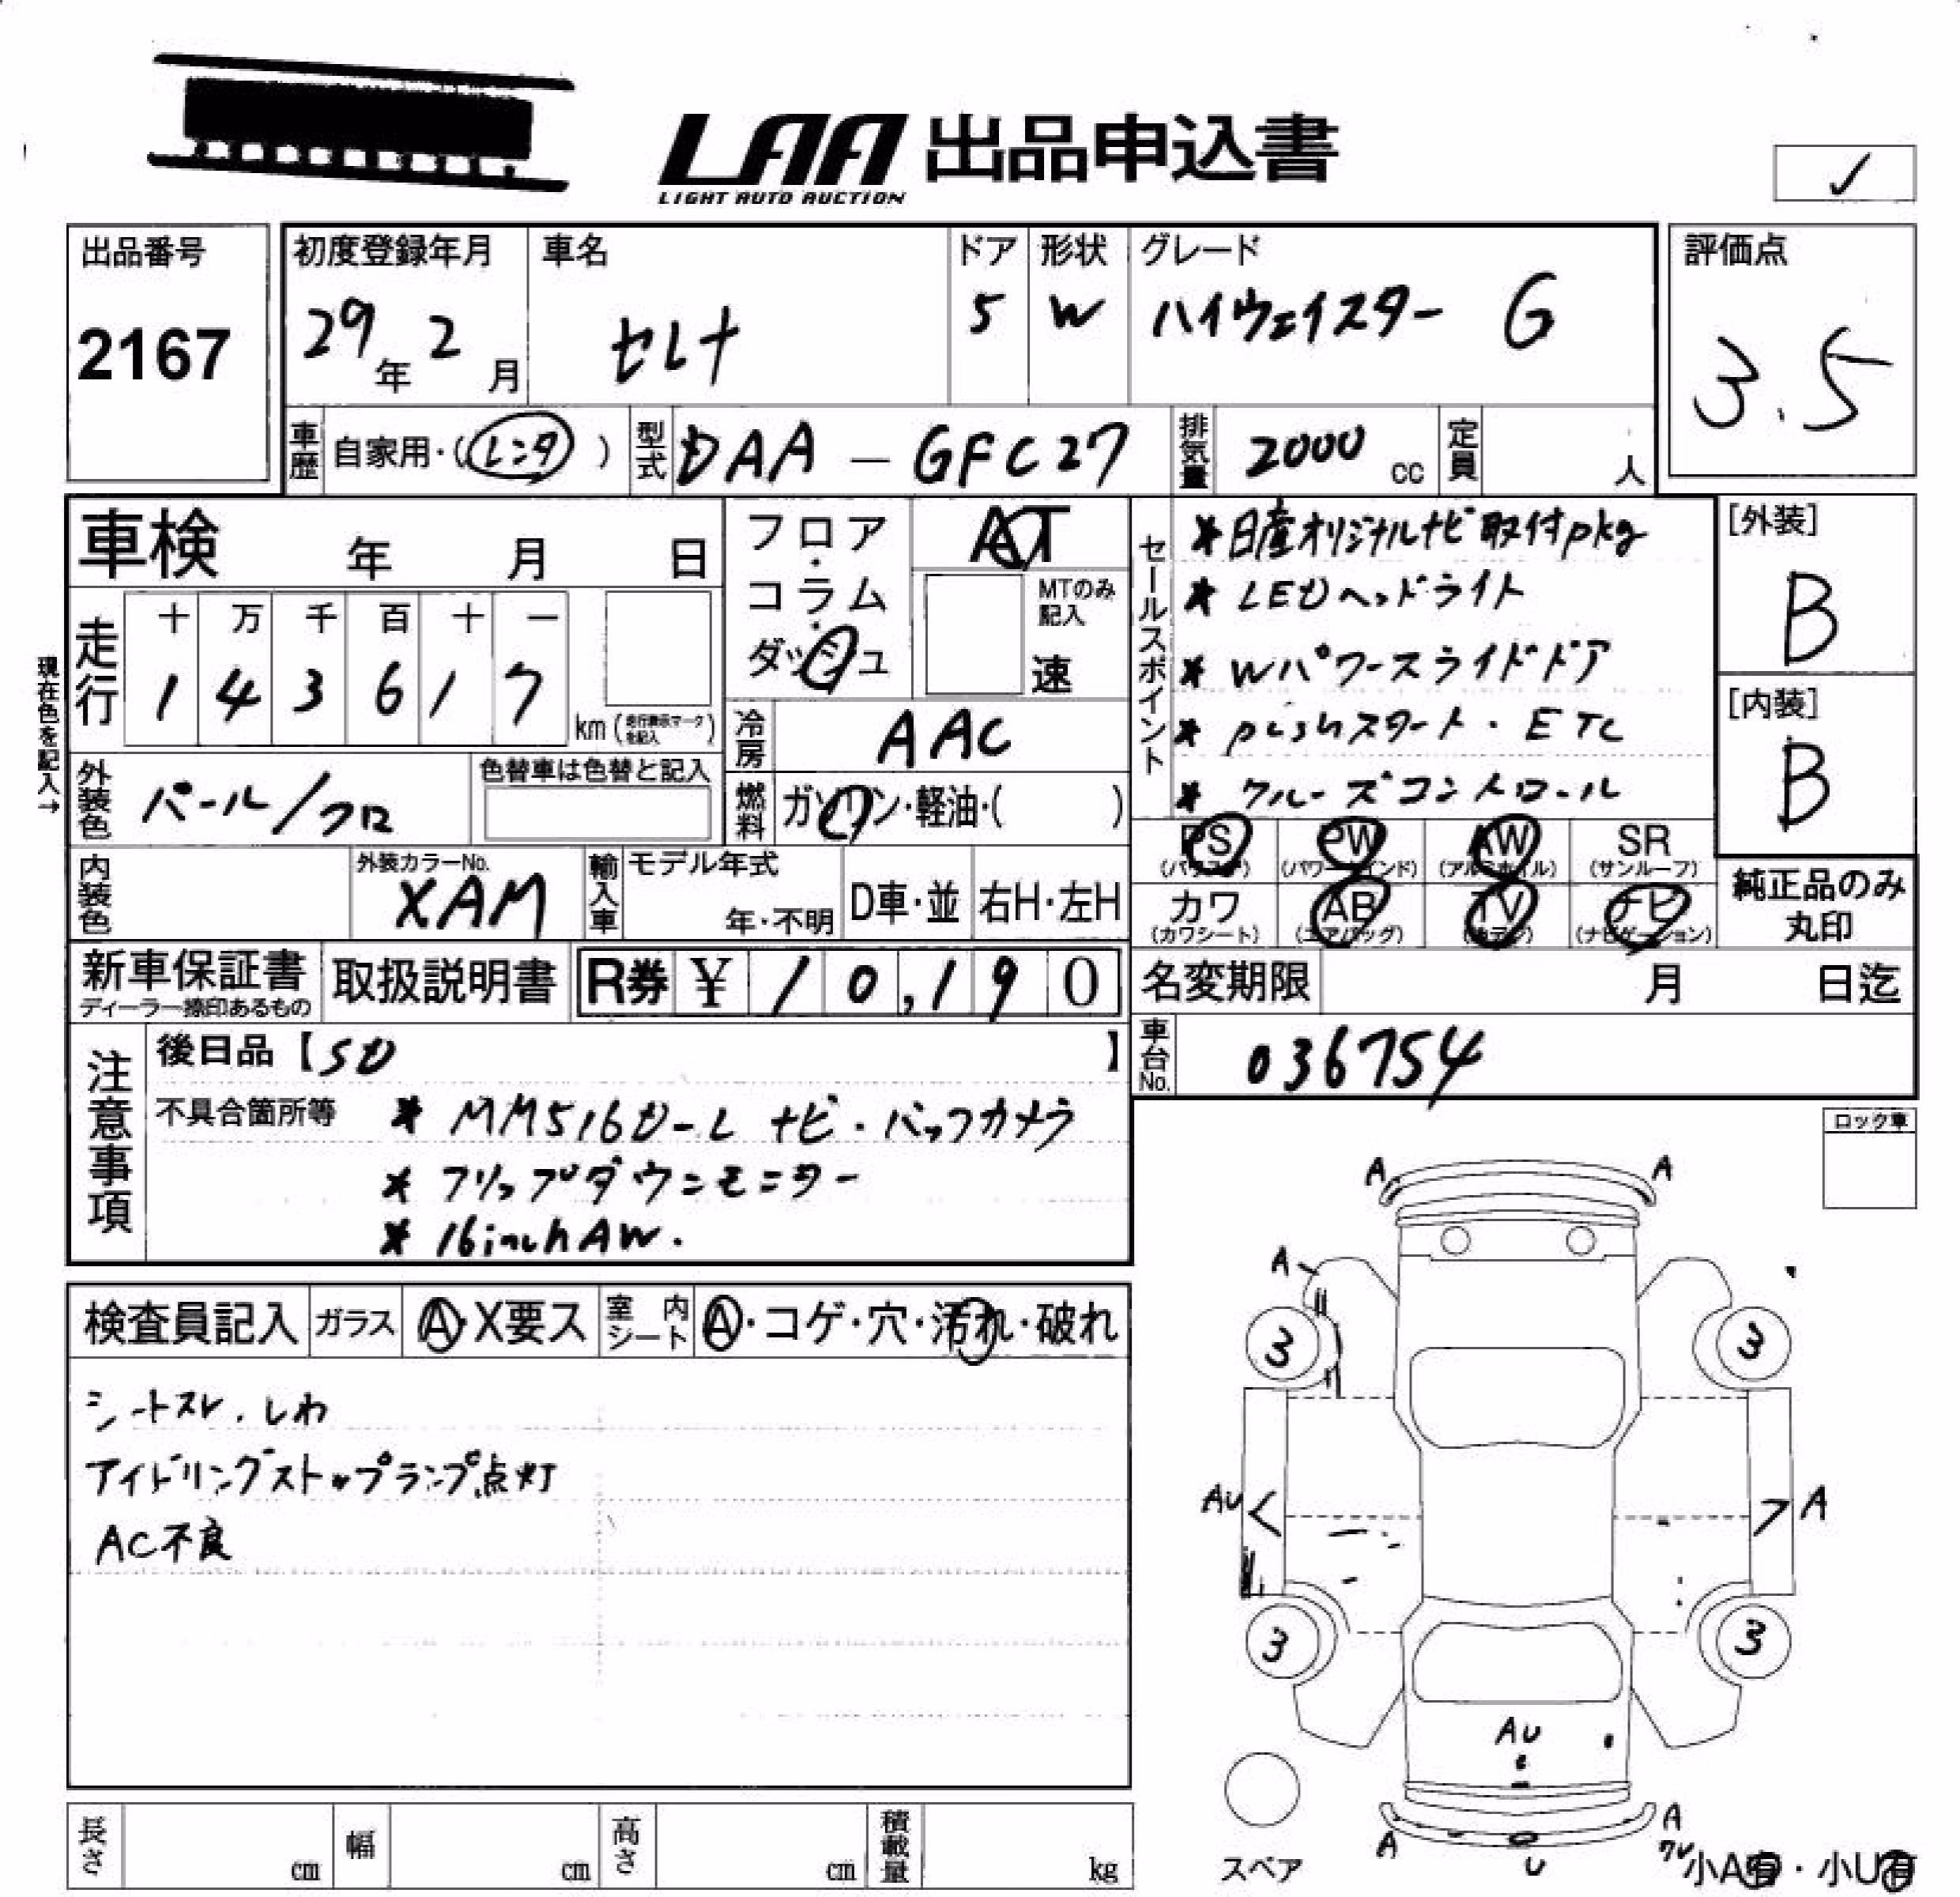 LAA 出品申込書
LIGHT AUTO AUCTION
✓
出品番号
2167
初度登録年月
29年 2月
車名
セレナ
ドア
5
形状
W
グレード
ハイウェイスター G
評価点
3.5
車歴 自家用・(レンタ)
型式 DAA-GFC27
排気量 2000 cc
定員 人
車検 年 月 日
走行
十 万 千 百 十 一
1 4 3 6 1 7
km (走行表示マークを記入)
現在色を記入→
フロア・コラム・ダッシュ
AT
MTのみ記入
速
冷房 AAC
燃料 ガソリン・軽油・( )
外装色 パール/クロ
色替車は色替と記入
内装色
外装カラーNo.
XAM
輸入車
モデル年式
年・不明
D車・並
右H・左H
セールスポイント
*日産オリジナルナビ取付pkg
* LEDヘッドライト
* Wパワースライドドア
* pushスタート・ETC
* クルーズコントロール
[外装]
B
[内装]
B
PS (パワステ)
PW (パワーウインド)
AW (アルミホイル)
SR (サンルーフ)
カワ (カワシート)
AB (エアバッグ)
TV
ナビ (ナビゲーション)
純正品のみ丸印
新車保証書
ディーラー捺印あるもの
取扱説明書
R券 ¥ 10,190
名変期限 月 日迄
車台No. 036754
注意事項
後日品【SD】
不具合箇所等
* MM516D-L ナビ・バックカメラ
* フリップダウンモニター
* 16inchAW.
検査員記入
ガラス A・X要ス
室内シート A・コゲ・穴・汚れ・破れ
シートスレ、しわ
アイドリングストップランプ点灯
AC不良
ロック車
A A
A
3 3
AU A
3 3
AU
A A
U
スペア
小A有・小U有
長さ cm
幅 cm
高さ cm
積載量 kg